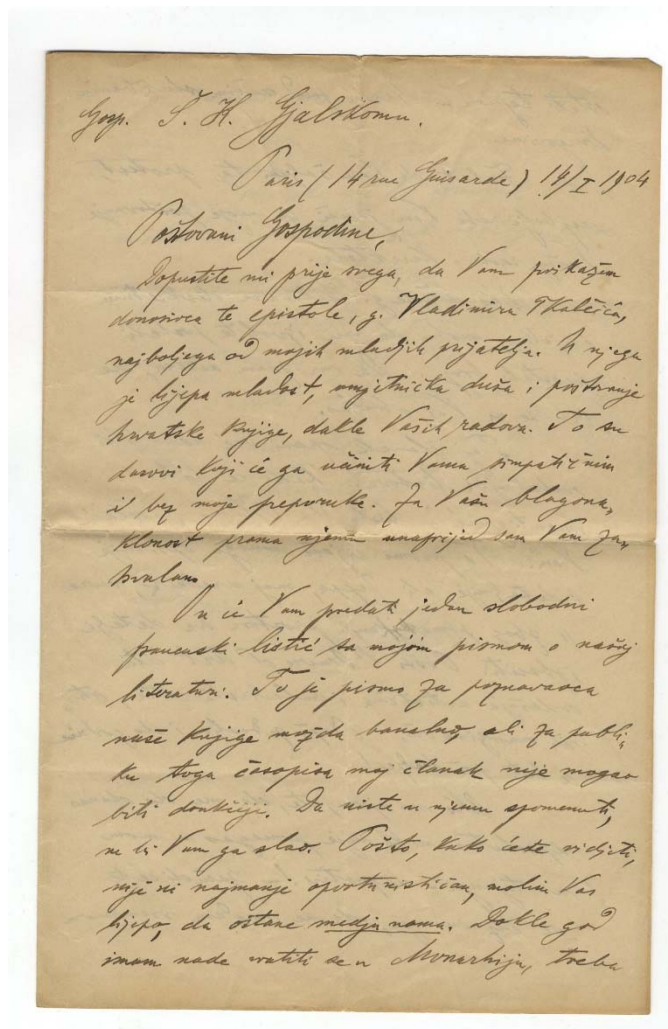 Gosp. Š. K. Gjalskomu.
Paris (14 rue Guisarde) 14/I 1904
Poštovani Gospodine,
Dopustite mi prije svega, da Vam prikažem
donosioca te epistole, g. Vladimira Tkalčića,
najboljega od mojih mladjih prijatelja. U njega
je lijepa mladost, umjetnička duša i poštovanje
hrvatske knjige, dakle Vaših radova. To su
darovi koji će ga učiniti Vama simpatičnim
i bez moje preporuke. Za Vašu blagona-
klonost prama njemu unaprijed sam Vam za-
hvalan.
On će Vam predati jedan slobodni
francuski listić sa mojim pismom o našoj
literaturi. To je pismo za poznavaoca
naše knjige možda banalno, ali za publi-
ku toga časopisa moj članak nije mogao
biti drukčiji. Da niste u njemu spomenuti,
ne bi Vam ga slao. Pošto, kako ćete vidjeti,
nije ni najmanje oportunističan, molim Vas
lijepo, da ostane medju nama. Dokle god
imam nade vratiti se u Monarhiju, treba